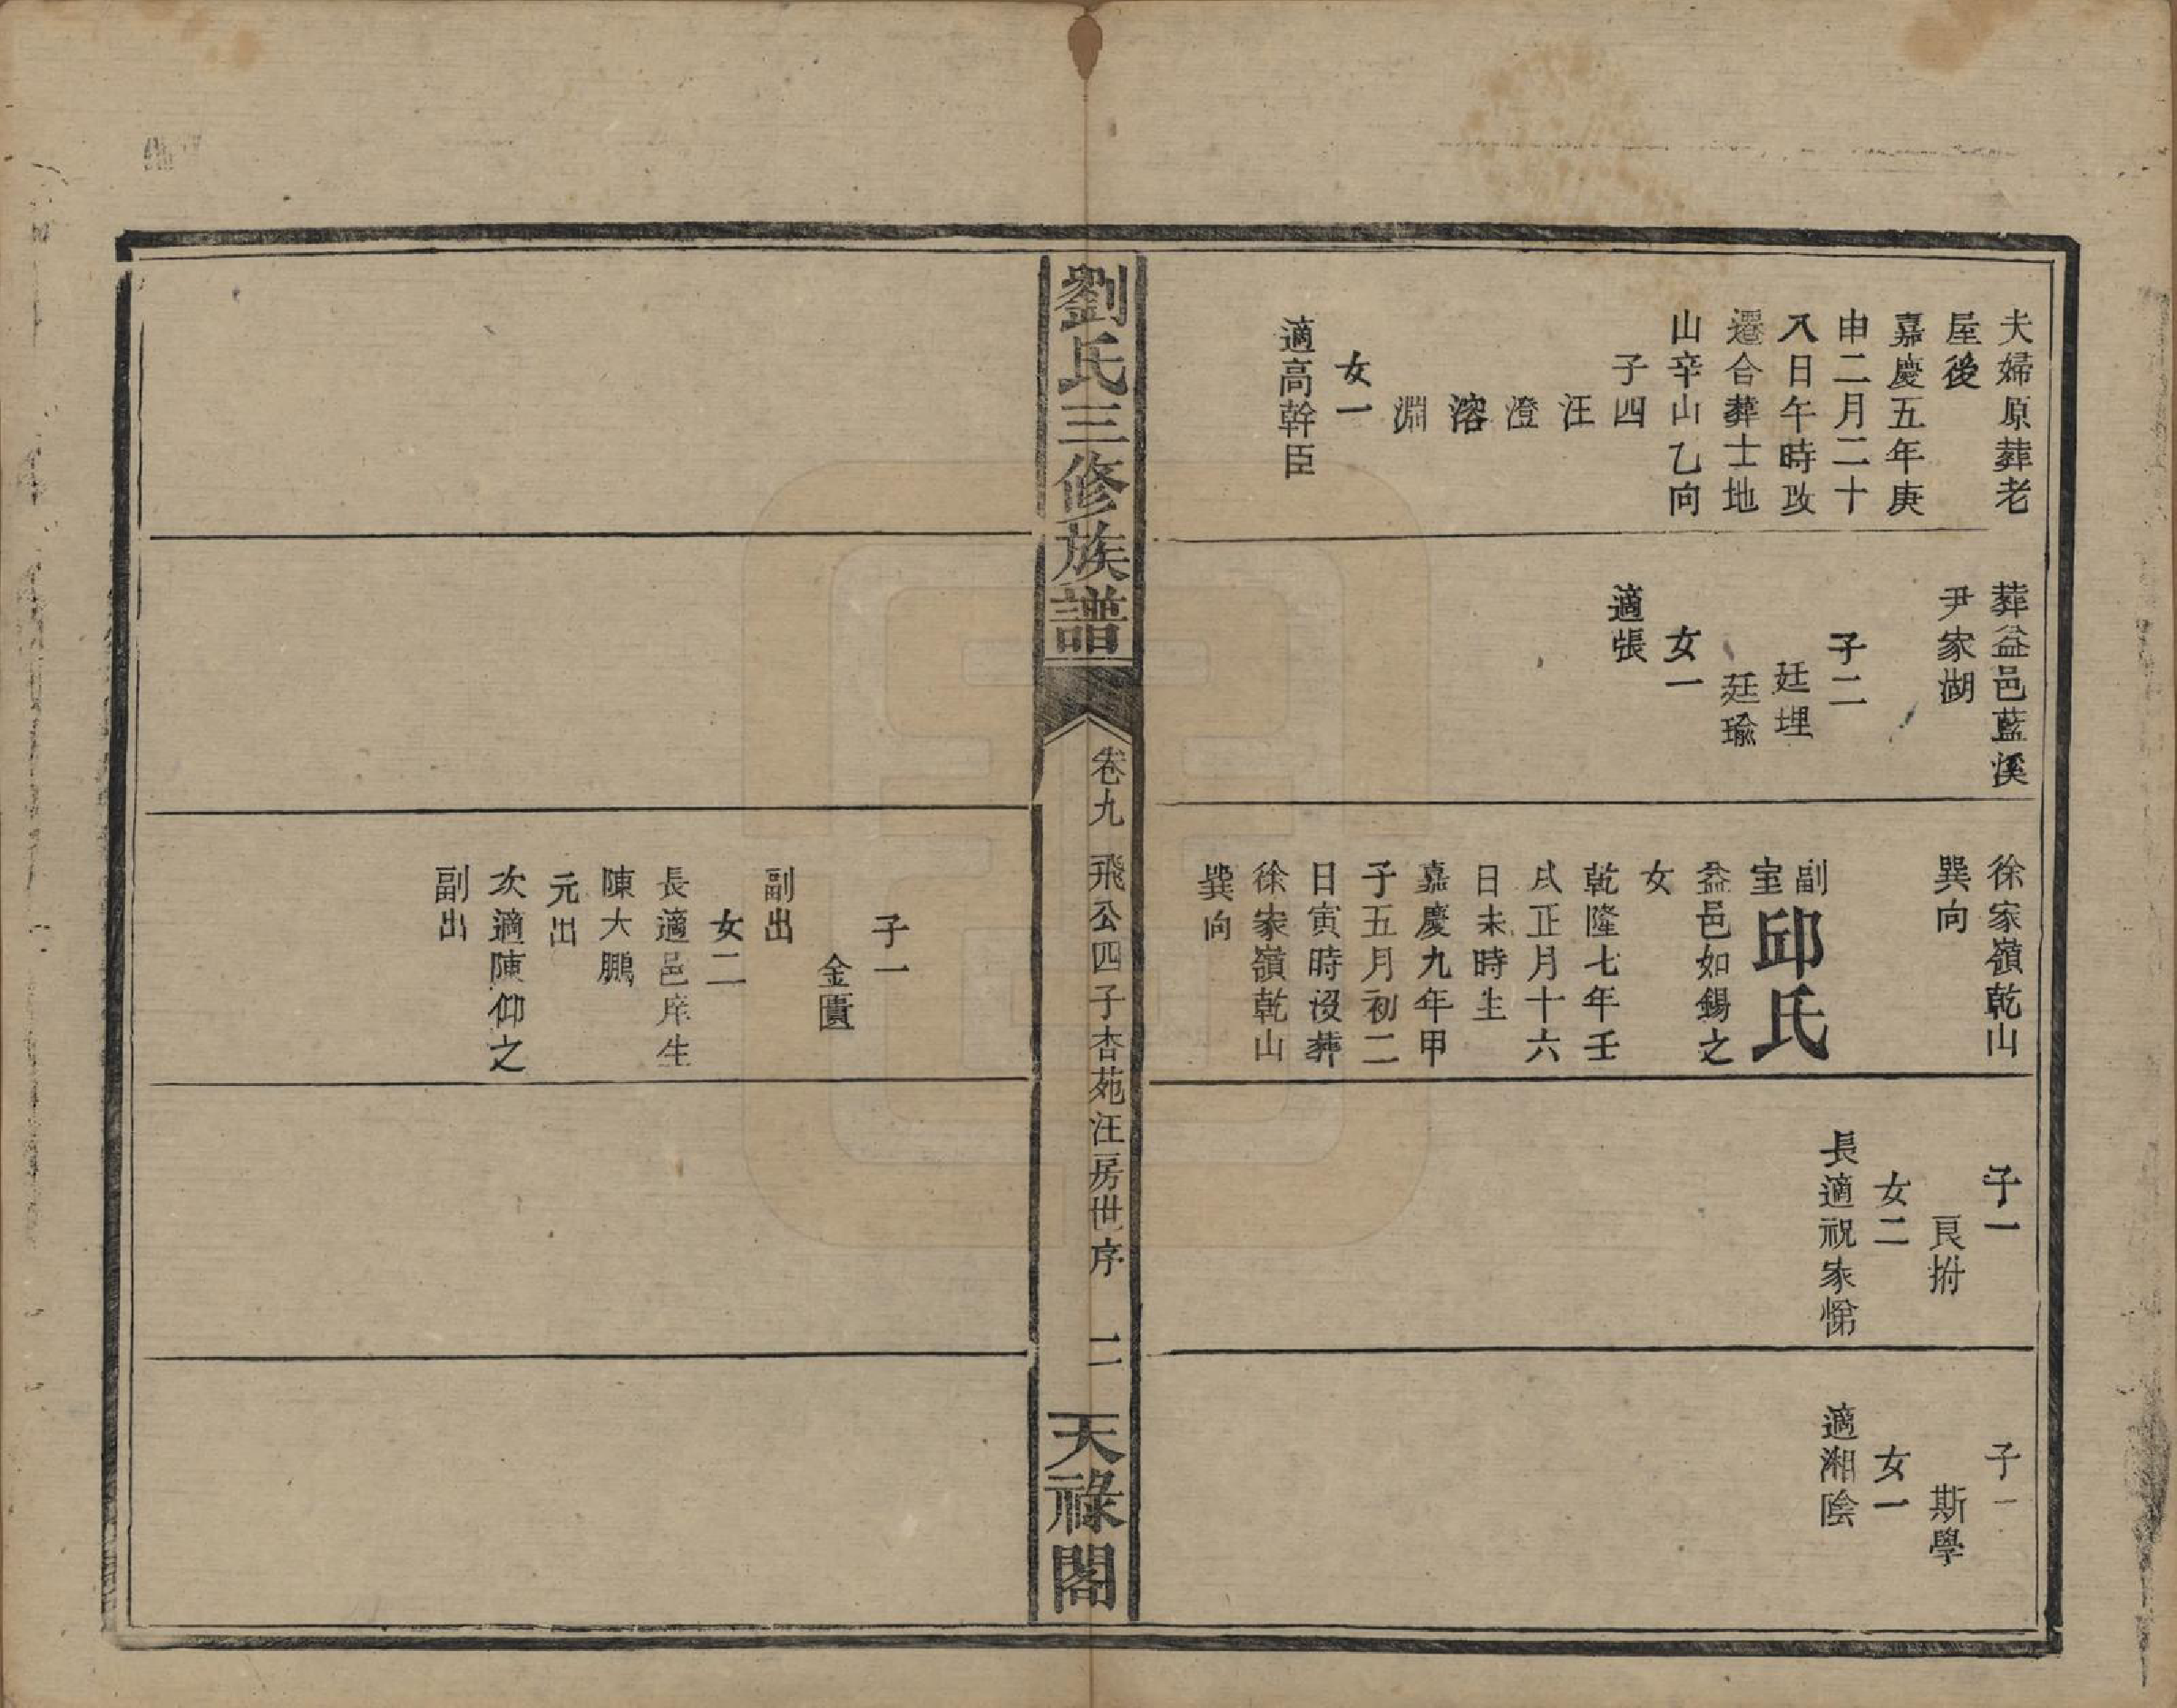 夫婦原葬老
屋後
嘉慶五年庚
申二月二十
八日午時改
遷合葬士地
山辛山乙向
子四
汪
澄
溶
淵
女一
適高幹臣
葬益邑藍溪
尹家湖
子二
廷理
廷瑜
女一
適張
徐家嶺乾山
巽向
副室邱氏
益邑如錫之
女
乾隆七年壬
戌正月十六
日未時生
嘉慶九年甲
子五月初二
日寅時沒葬
徐家嶺乾山
巽向
子一
良拊
女二
長適祝家悌
子一
斯學
女一
適湘陰
劉氏三修族譜
卷九 飛公四子杏苑汪房世序 二
天祿閣
子一
金匱
副出
女二
長適邑庠生
陳大鵬
元出
次適陳仰之
副出